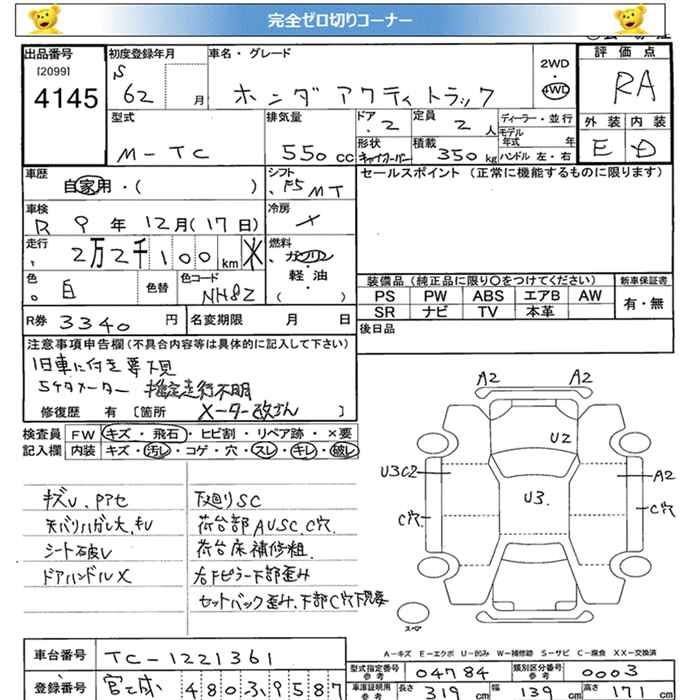 完全ゼロ切りコーナー
出品番号 初度登録年月 車名・グレード 評価点
[2099] 2WD
4145 S 62 月 ホンダ アクティトラック 4WD RA
型式 排気量 ドア 定員 ディーラー・並行 外装 内装
モデル年式 年式
M-TC 550 cc .2 2 人 E D
形状 積載 350 kg ハンドル 左・右
車歴 シフト セールスポイント(正常に機能するものに限ります)
自家用・( ) F5 MT
車検 冷房
R 9 年 12 月(17日) ×
走行 燃料
2万2千100 km ※ ガソリン
軽・油
色 色替 色コード ( )
白 NH82
装備品(純正品に限り○をつけてください) 新車保証書
PS PW ABS エアB AW 有・無
SR ナビ TV 本革
R券 3340 円 名変期限 月 日 後日品
注意事項申告欄(不具合内容等は具体的に記入して下さい)
旧車に付き要下見
5ケタメーター 推定走行不明
修復歴 有 [箇所 メーター改ざん ]
検査員 FW キズ・飛石・ヒビ割・リペア跡・×要
記入欄 内装 キズ・汚レ・コゲ・穴・スレ・キレ・破レ
キズU、Pアセ
天バリハガレ大、キレ
シート破レ
ドアハンドル×
下廻りSC
荷台部AUSC、C穴
荷台床補修粗
右下ピラー下部歪み
セットバック歪み、下部C穴下見要
A2 A2
U2
U3C2 A2
U3.
C穴 C穴
スペア
A-キズ E-エクボ U-凹み W-補修跡 S-サビ C-腐食 XX-交換済
車台番号 TC-1221361
型式指定番号 参考 04784 類別区分番号 参考 0003
登録番号 480 9587
車庫証明用 参考 長さ 319 cm 幅 139 cm 高さ 171 cm